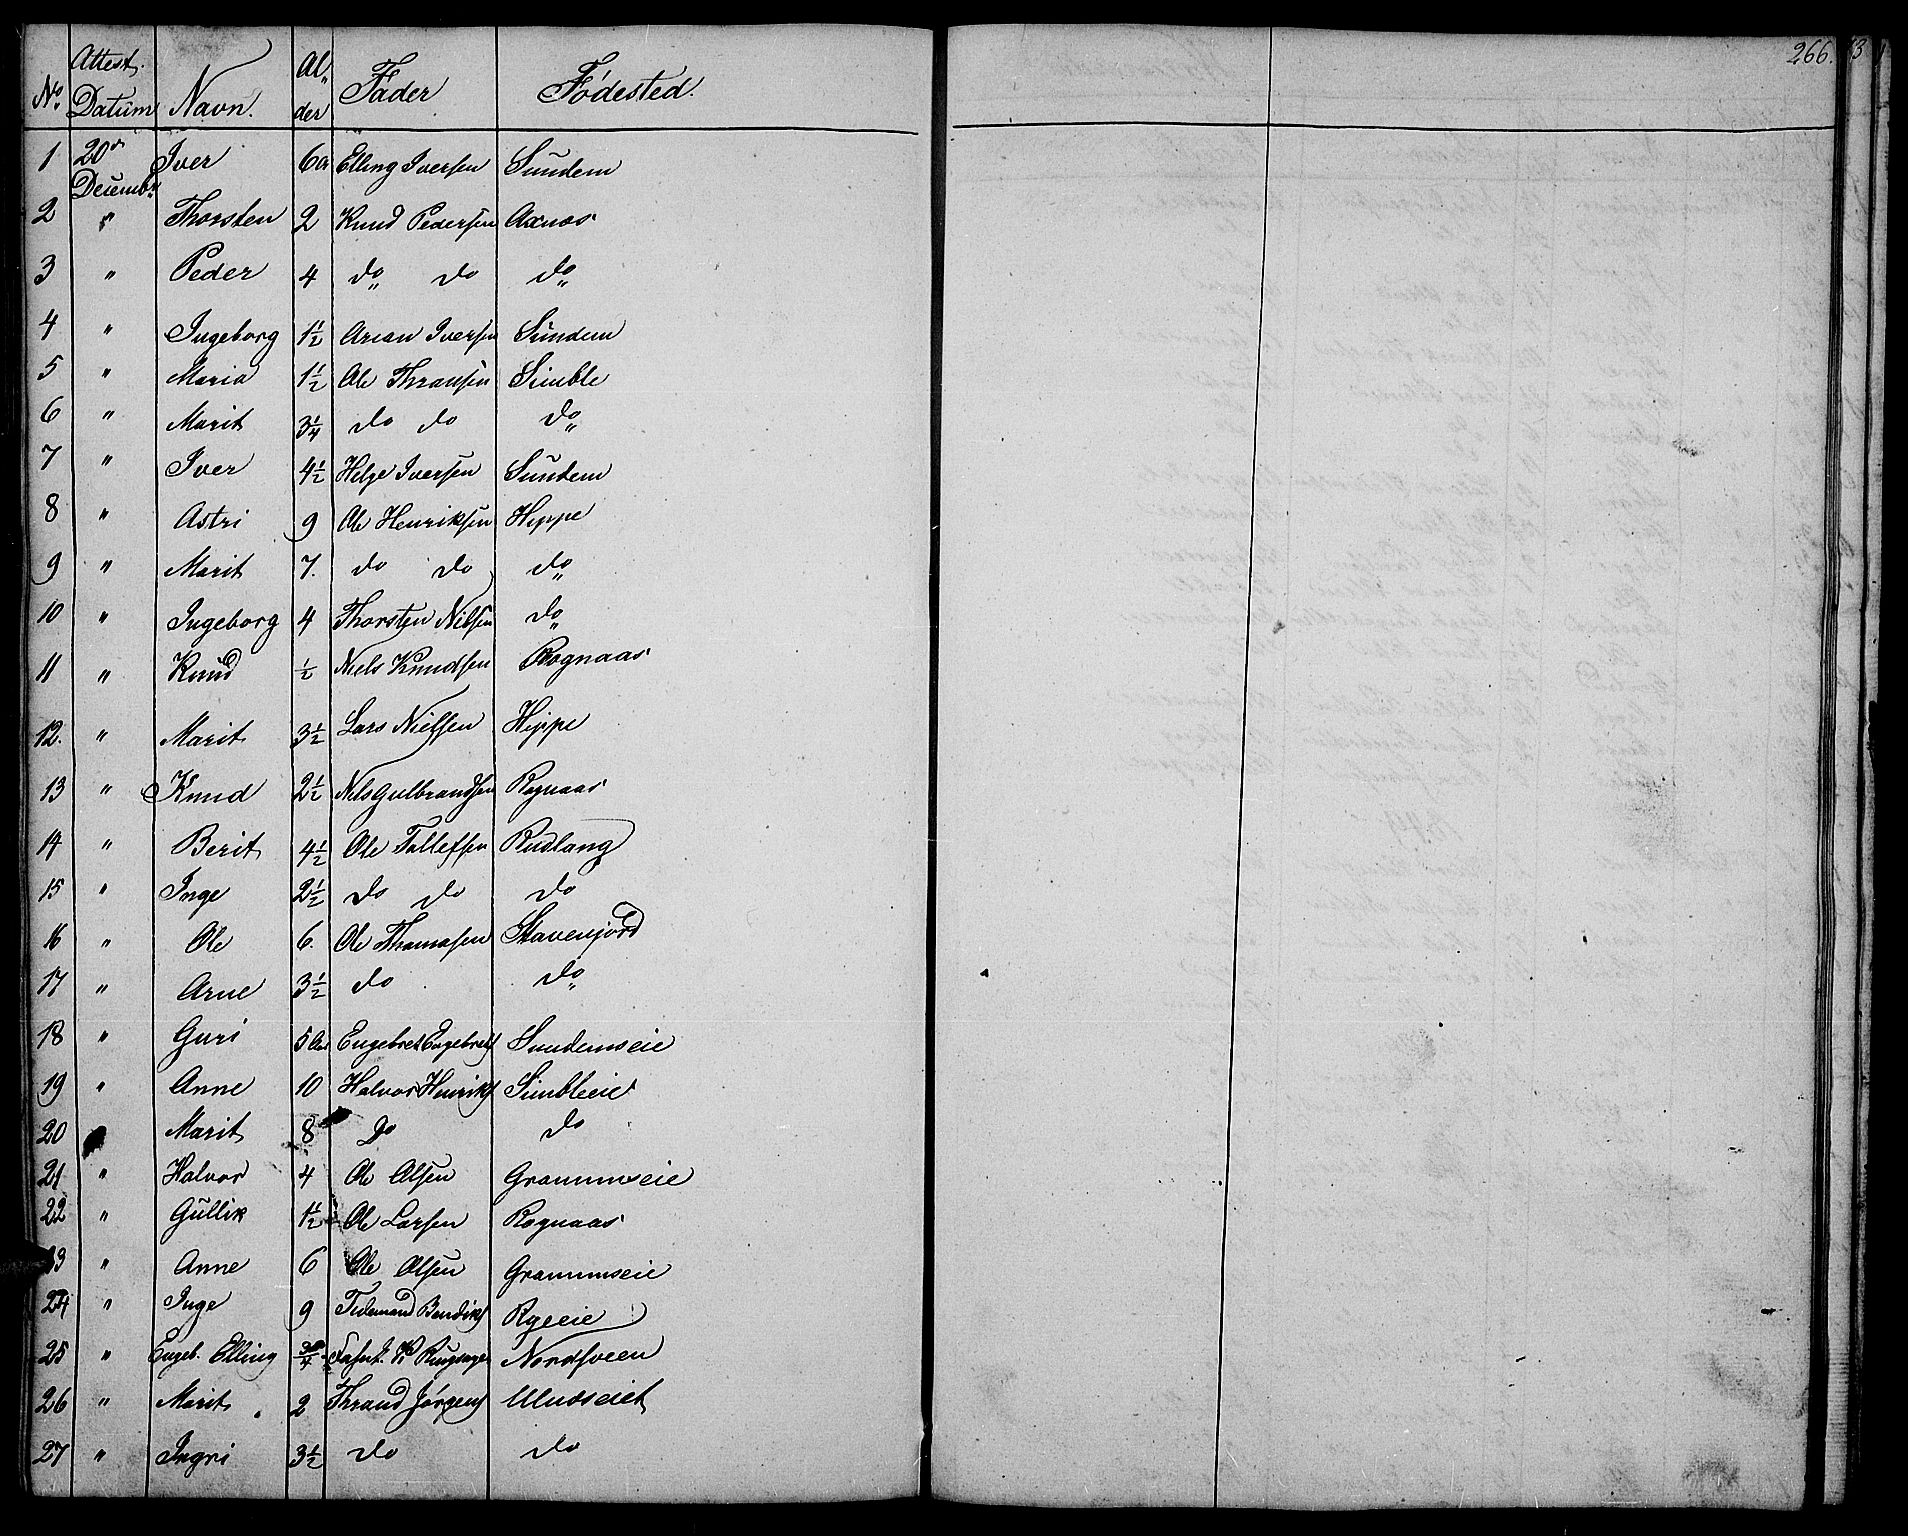 266.
No Attest. Datum Navn. Al„der Fader Fødested.
1 20de Decembr. Iver 6 Elling Iversen Sundem
2 " Thorsten 2 Knud Pedersen Axnæs
3 " Peder 4 do„ do do„
4 " Ingeborg 1½ Arian Iversen Sundem
5 " Maria 1½ Ole Thransen Simble
6 " Marit 3¼ do do do„
7 " Iver 4½ Helge Iversen Sundem
8 " Astri 9 Ole Henriksen Hippe
9 " Marit 7. do do do„
10 " Ingeborg 4 Thorsten Nilsen do„
11 " Knud ½ Niels Knudsen Rognaas
12. " Marit 3½ Lars Nielsen Hippe
13 " Knud 2½ Nils Gulbrandsen Rognaas
14 " Berit 4½ Ole Tollefsen Rudlang
15 " Inge 2½ do do do
16 " Ole 6. Ole Thomasen Stavenjord
17 " Arne 3½ do do„
18 " Guri 5 Engebret Engebrets Sundemseie
19 " Anne 10 Halvor Henriks Simbleeie
20 Marit 8 Do do
21 " Halvor 4 Ole Olsen Grammseie
22 " Gullik 1½ Ole Larsen Rognaas
23 " Anne 6 Ole Olsen Grammseie
24 " Inge 9 Tidemand Bendiks Ryeeie
25 " Engeb. Elling ¾ Nordsveen
26 " Marit 2 Thrand Jørgens Ulnæseiet
27 " Ingri 3½ do do